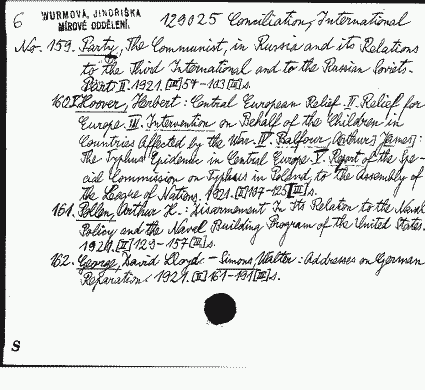 6 WURMOVÁ, JINDŘIŠKA 129025 Conciliation, International
MÍROVÉ ODDĚLENÍ.
No. 159. Party, The Communist, in Russia and its Relations
to the Third International and to the Russian Soviets.
Part II. 1921. [III] 54-103 [III] s.
160. I. Hoover, Herbert: Central European Relief. II. Relief for
Europe. III. Intervention on Behalf of the Children in
Countries Affected by the War. IV. Balfour, A[rthur] J[ames]:
The Typhus Epidemic in Central Europe. V. Report of the Spe-
cial Commission on Typhus in Poland, to the Assembly of
the League of Nations. 1921. [II] 107-125 [III] s.
161. Pollen, Arthur H.: Disarmement In Its Relation to the Naval
Policy and the Naval Building Program of the United States.
1921. [II] 129-157 [III] s.
162. George, David Lloyd. - Simons, Walter: Addresses on German
Reparation. 1921. [II] 161-191 [III] s.
S